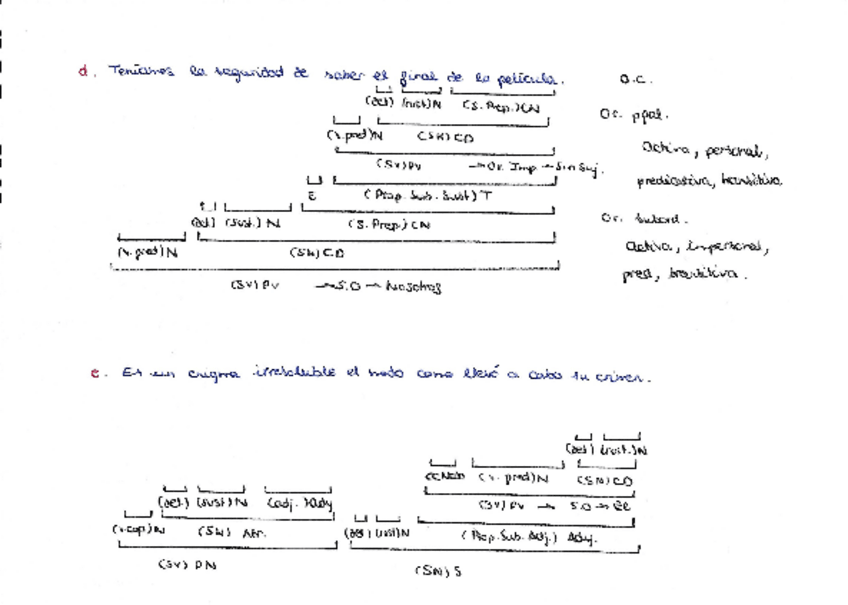 d. Teníamos la seguridad de saber el final de la película. O.C.
(det) (sust)N (S. Prep.) CN
Or. ppal.
(v. pred)N (SN) CD
Activa, personal,
(SV) PV → Or. Imp → Sin Suj.
predicativa, transitiva.
E (Prop. Sub. Sust) T
(det) (sust.) N (S. Prep.) CN
Or. subord.
(v. pred)N (SN) CD
Activa, impersonal,
(SV) PV → S.O → Nosotros
pred, transitiva.
e. Es un enigma irresoluble el modo como llevó a cabo su crimen.
(det) (sust.)N
CCMod (v. pred)N (SN) CD
(det.) (sust) N (adj.) Ady (SV) PV → S.O → Él
(v. cop) N (SN) Atr. (det) (sust)N (Prop. Sub. Adj.) Ady.
(SV) PN (SN) S